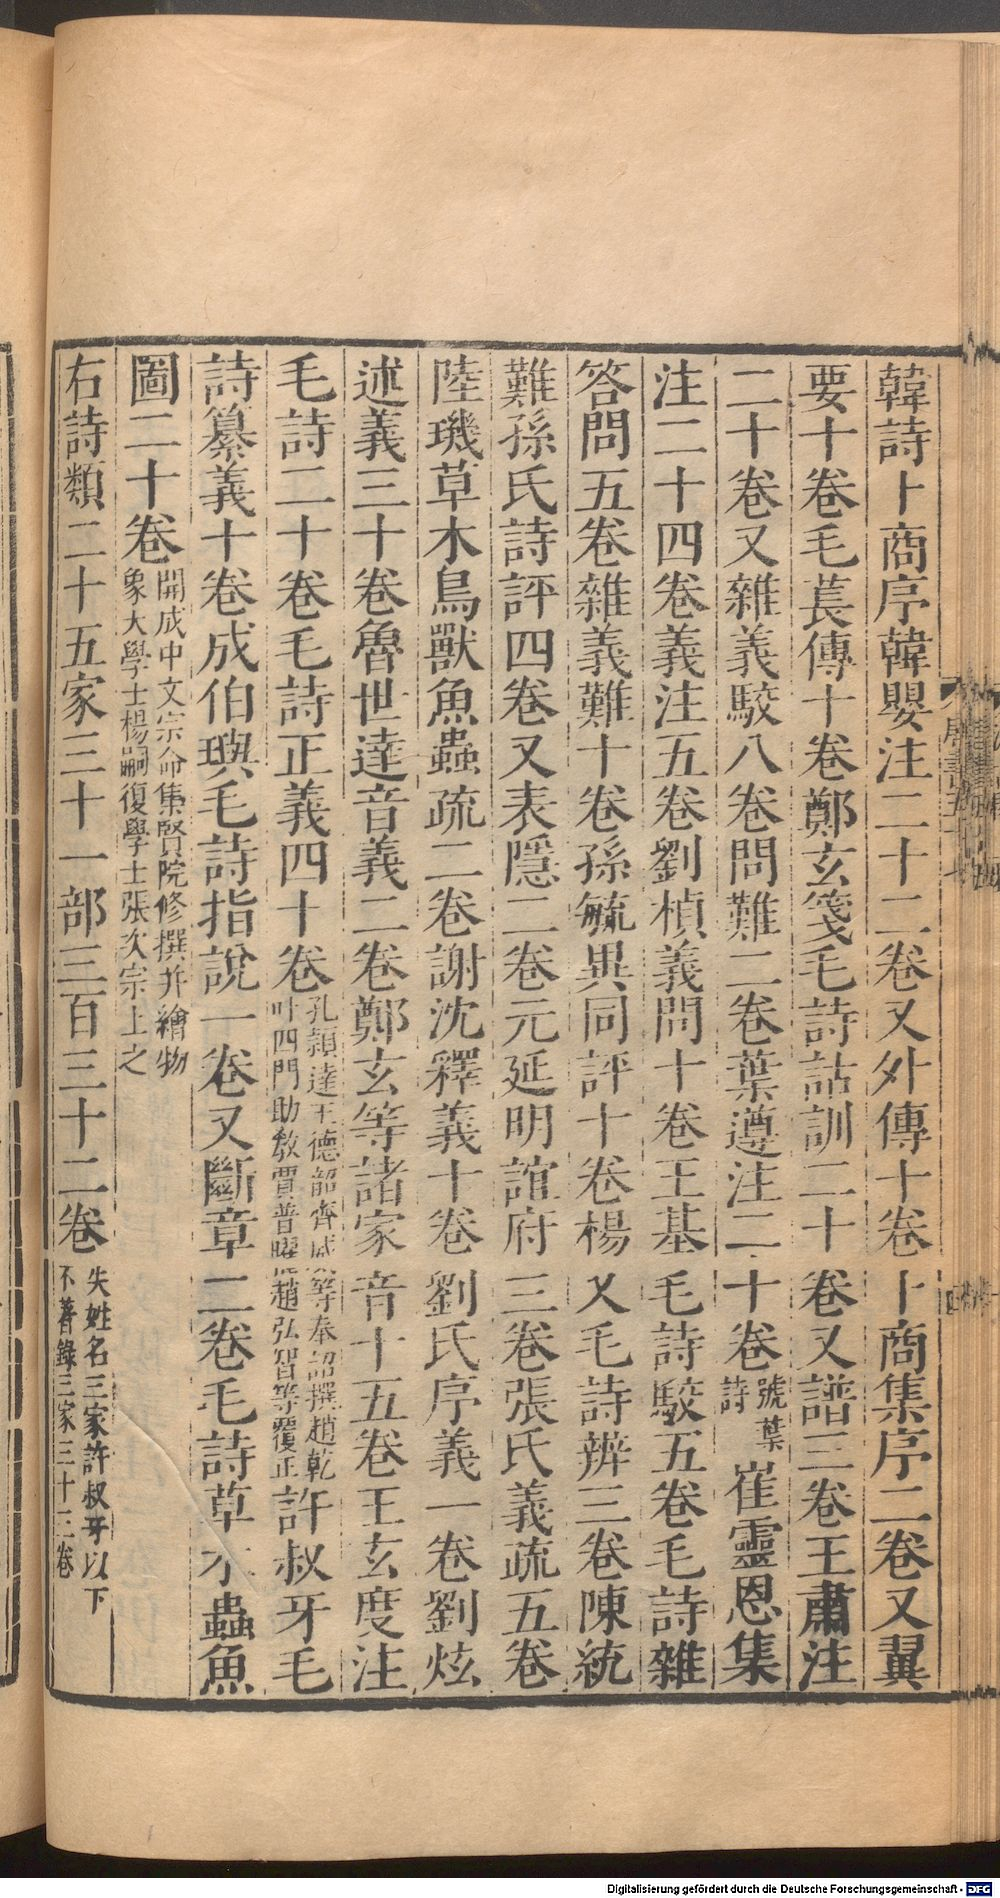 韓詩卜商序韓嬰注二十二卷又外傳十卷卜商集序二卷又翼
要十卷毛萇傳十卷鄭玄箋毛詩詁訓二十卷又譜三卷王肅注
二十卷又雜義駮八卷問難二卷葉遵注二十卷號葉詩崔靈恩集
注二十四卷義注五卷劉楨義問十卷王基毛詩駮五卷毛詩雜
答問五卷雜義難十卷孫毓異同評十卷楊乂毛詩辨三卷陳統
難孫氏詩評四卷又表隱二卷元延明誼府三卷張氏義疏五卷
陸璣草木鳥獸魚蟲疏二卷謝沈釋義十卷劉氏序義一卷劉炫
述義三十卷魯世達音義二卷鄭玄等諸家音十五卷王玄度注
毛詩二十卷毛詩正義四十卷孔穎達王德韶齊威等奉詔撰趙乾叶四門助教賈普曜趙弘智等覆正許叔牙毛
詩纂義十卷成伯璵毛詩指說一卷又斷章二卷毛詩草木蟲魚
圖二十卷開成中文宗命集賢院修撰并繪物象大學士楊嗣復學士張次宗上之
右詩類二十五家三十一部三百三十二卷失姓名三家許叔牙以下不著錄三家三十三卷
Digitalisierung gefördert durch die Deutsche Forschungsgemeinschaft - DFG